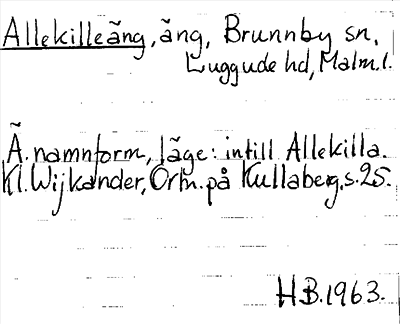 Allekilleäng, äng, Brunnby sn,
Luggude hd, Malm.l.
Ä. namnform, läge: intill Allekilla.
Kl. Wijkander, Ortn. på Kullaberg, s. 25.
H.B. 1963.